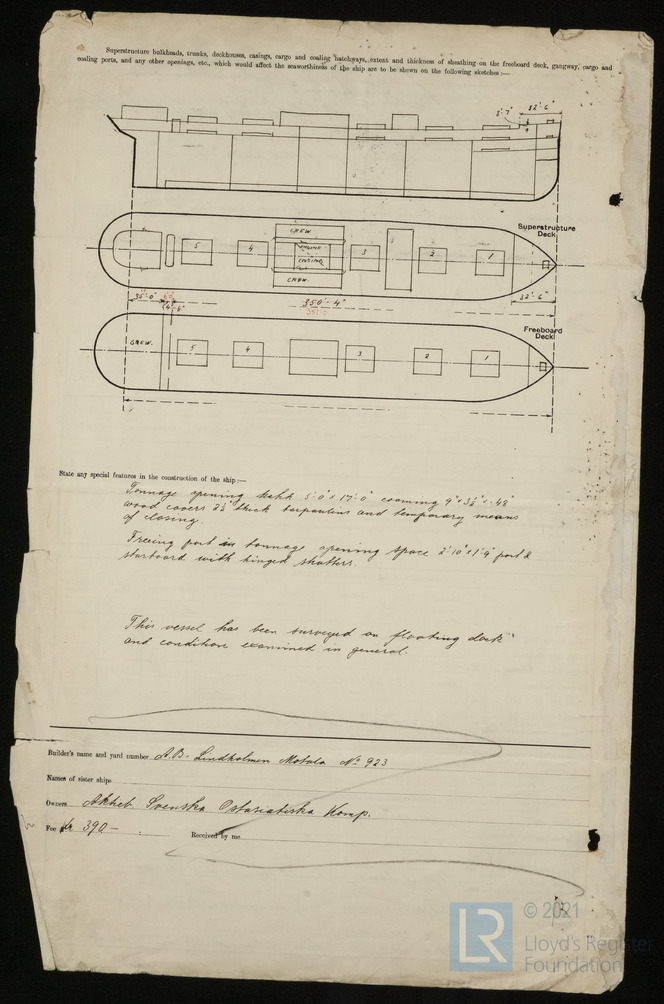 Superstructure bulkheads, trunks, deckhouses, casings, cargo and coaling hatchways, extent and thickness of sheathing on the freeboard deck, gangway, cargo and
coaling ports, and any other openings, etc., which would affect the seaworthiness of the ship are to be shown on the following sketches:—
32'-6"
3'-7"
CREW
Superstructure
Deck
5
4
ENGINE
CASING
3
2
1
CREW.
35'-0"
350'-4"
32'-6"
4'-8"
Freeboard
Deck
CREW.
5
4
3
2
1
State any special features in the construction of the ship:—
Tonnage opening hatch 5'-0" x 17'-0" coaming 9" x 3½" x .48"
wood covers 2½" thick tarpaulins and temporary means
of closing.
Freeing port in tonnage opening space 2'-10" x 1'-9" port &
starboard with hinged shutters.
This vessel has been surveyed on floating dock
and condition examined in general.
Builder's name and yard number A.B. Lindholmen Motala No 923
Names of sister ships
Owners Aktieb. Svenska Ostasiatiska Komp.
Fee Kr 390 —
Received by me
LR
© 2021
Lloyd's Register
Foundation